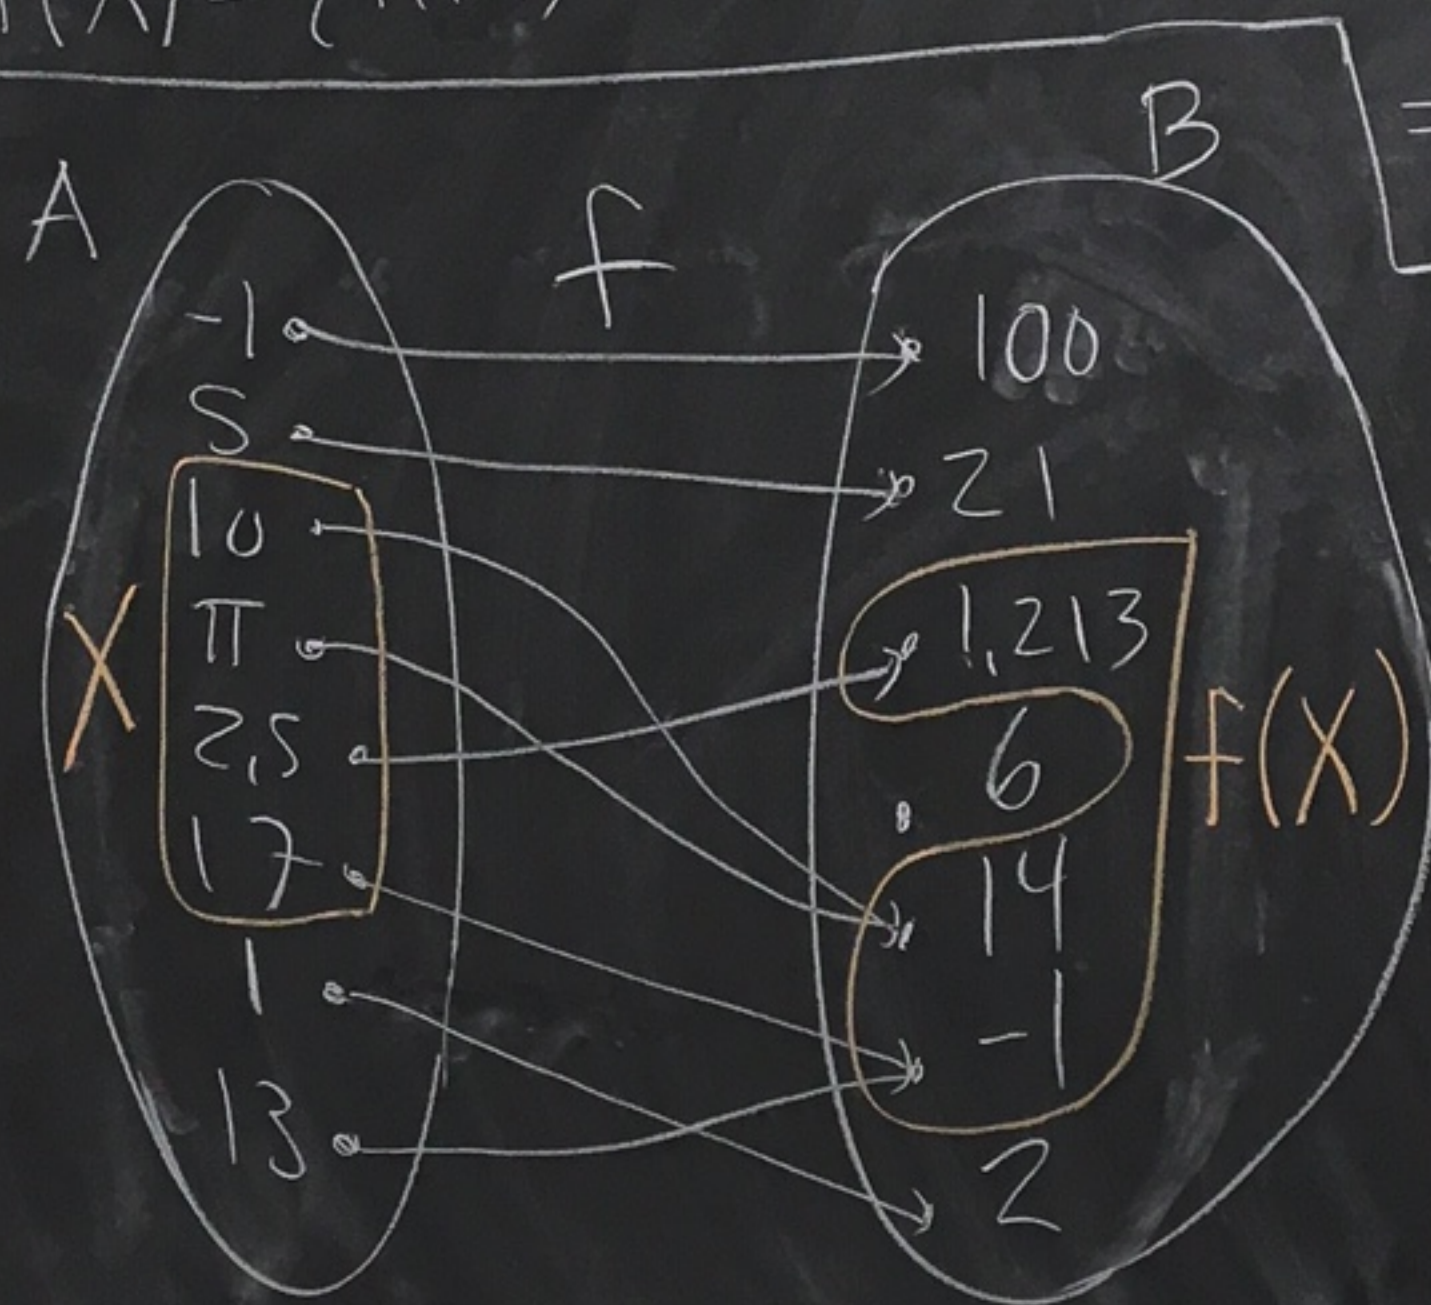 A
f
B
-1
5
10
π
2,5
17
1
13
X
100
21
1,213
6
14
-1
2
f(X)